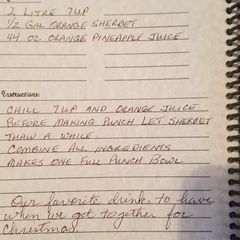 2 LITRE 7UP
1/2 GAL ORANGE SHERBET
44 OZ ORANGE PINEAPPLE JUICE
Instructions:
CHILL 7UP AND ORANGE JUICE
BEFORE MAKING PUNCH LET SHERBET
THAW A WHILE
COMBINE ALL INGREDIENTS
MAKES ONE FULL PUNCH BOWL
Our favorite drink to have
when we got together for
Christmas.